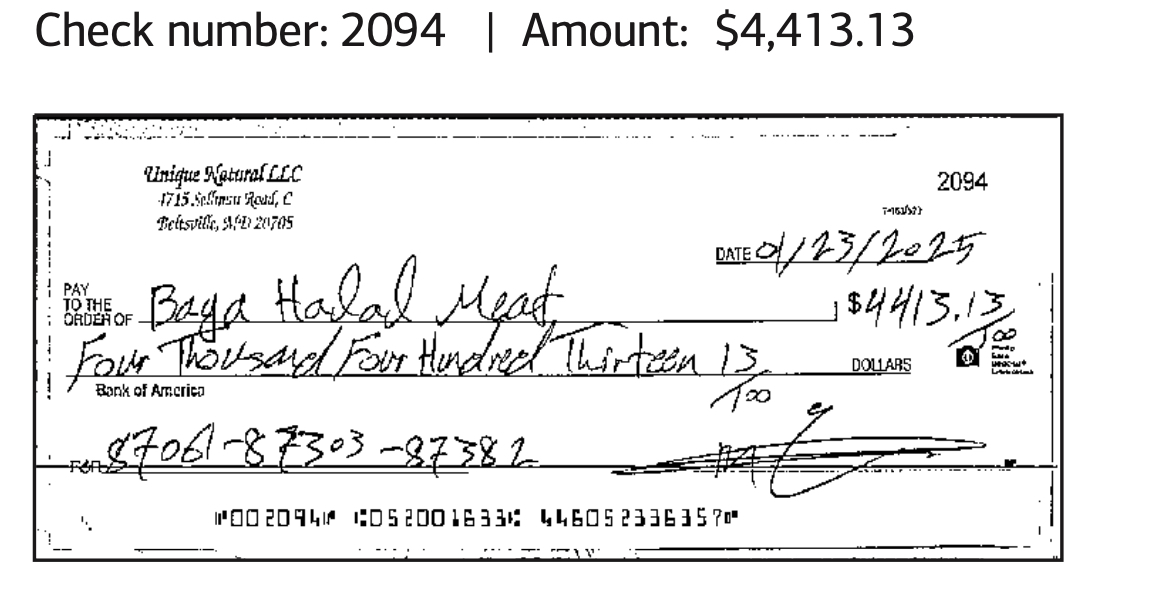 Check number: 2094 | Amount: $4,413.13
Unique Natural LLC
4715 Sellman Road, C
Beltsville, MD 20705
2094
DATE 01/23/2025
PAY
TO THE
ORDER OF Baga Halal Meat $4413.13/100
Four Thousand Four Hundred Thirteen 13/100 DOLLARS
Bank of America
FOR 87061-87303-87382
⑈002094⑈ ⑆052001633⑆ 446052336357⑈